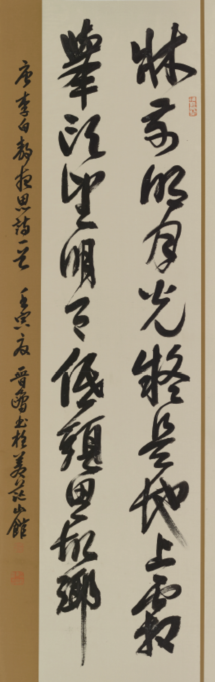 牀前明月光疑是地上霜
舉頭望明月低頭思故鄉
唐李白靜夜思詩一首 壬寅夏晉齋書於養花小館